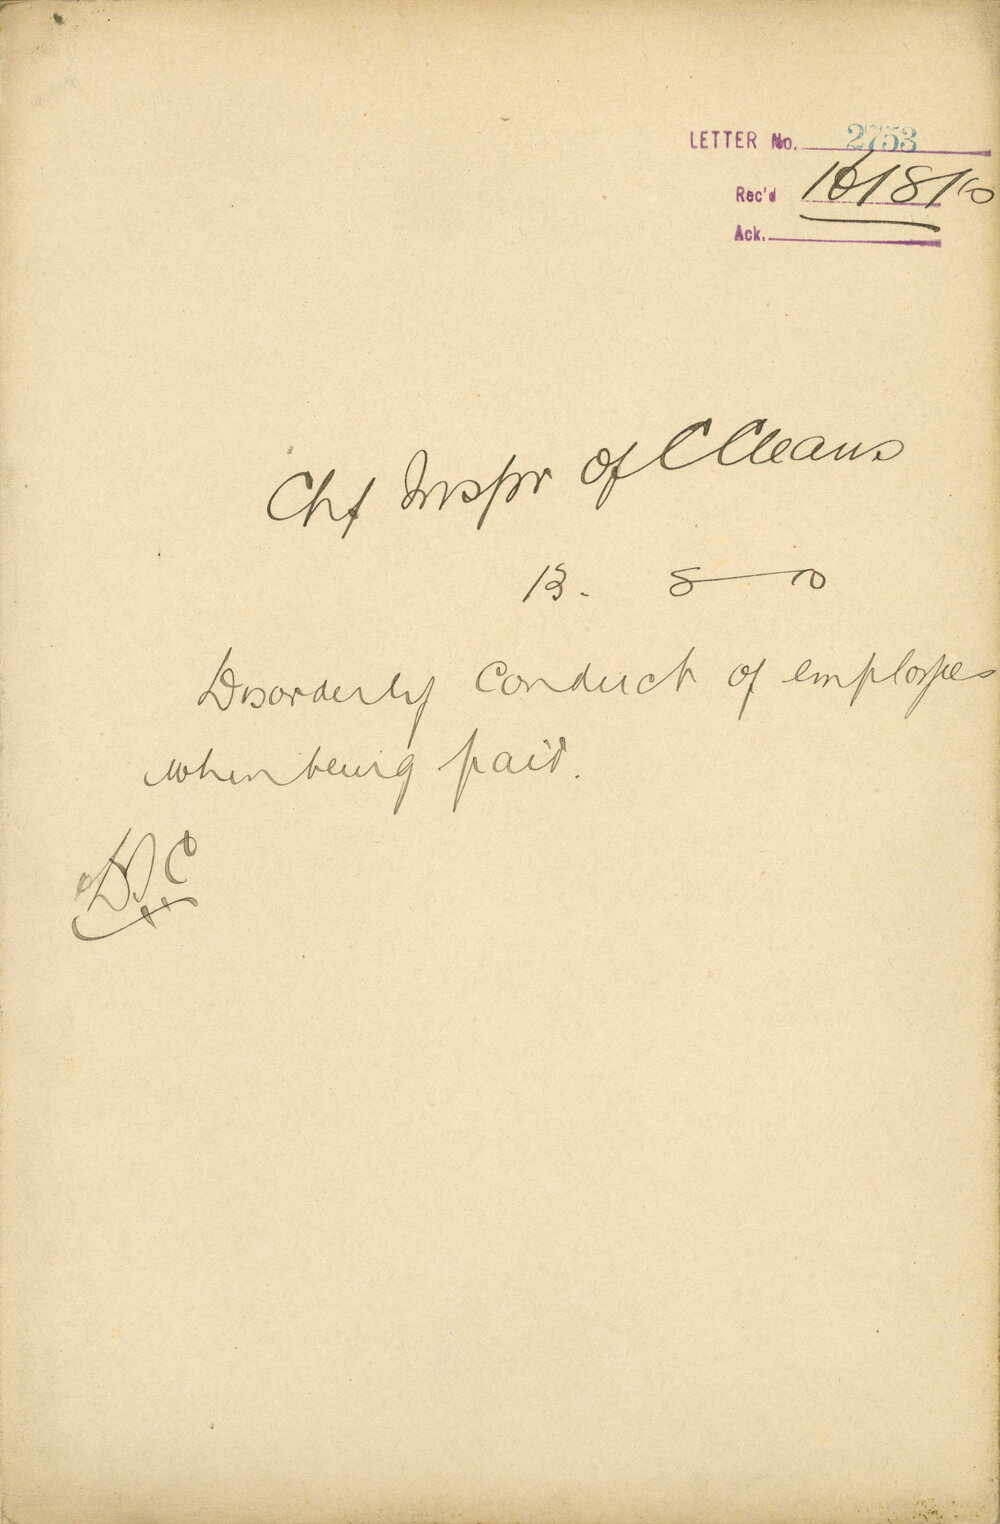 LETTER No. 2753
Rec'd 16/8/10
Ack.
Chf Inspr of C Cleans
13. 8 10
Disorderly Conduct of employees
when being paid.